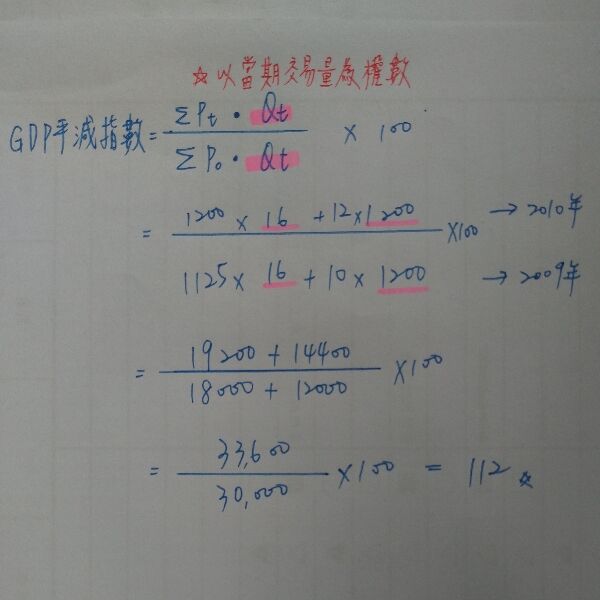 ☆以當期交易量為權數
GDP平減指數 = ΣPt · Qt / ΣP0 · Qt × 100
= 1200 × 16 + 12 × 1200 / 1125 × 16 + 10 × 1200 × 100 → 2010年 → 2009年
= 19200 + 14400 / 18000 + 12000 × 100
= 33,600 / 30,000 × 100 = 112 ☆